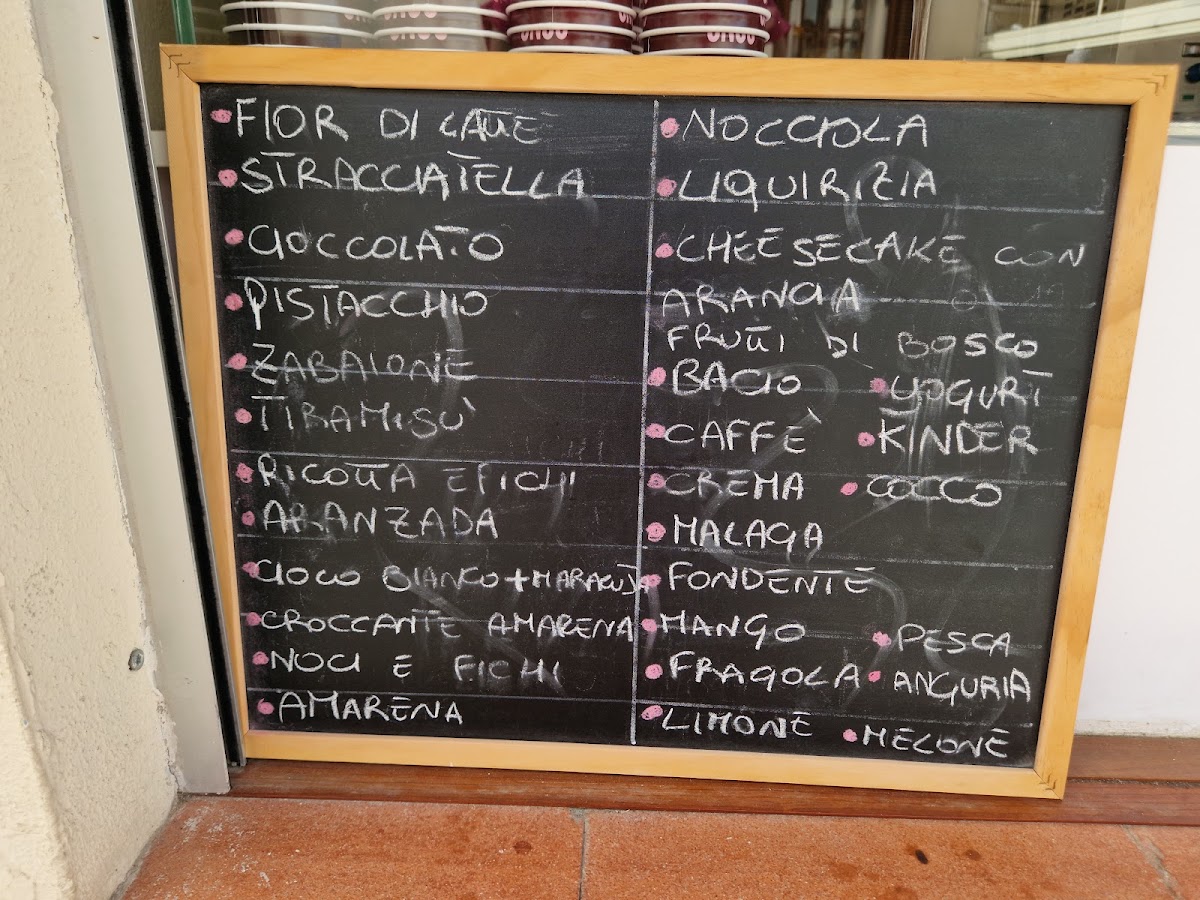 FIOR DI LATTE
STRACCIATELLA
CIOCCOLATO
PISTACCHIO
ZABAIONE
TIRAMISÙ
RICOTTA E FICHI
ARANZADA
CIOCO BIANCO + MARACUJA
CROCCANTE AMARENA
NOCI E FICHI
AMARENA
NOCCIOLA
LIQUIRIZIA
CHEESECAKE CON
ARANCIA
FRUTTI DI BOSCO
BACIO YOGURT
CAFFÈ KINDER
CREMA COCCO
MALAGA
FONDENTE
MANGO PESCA
FRAGOLA ANGURIA
LIMONE MELONE